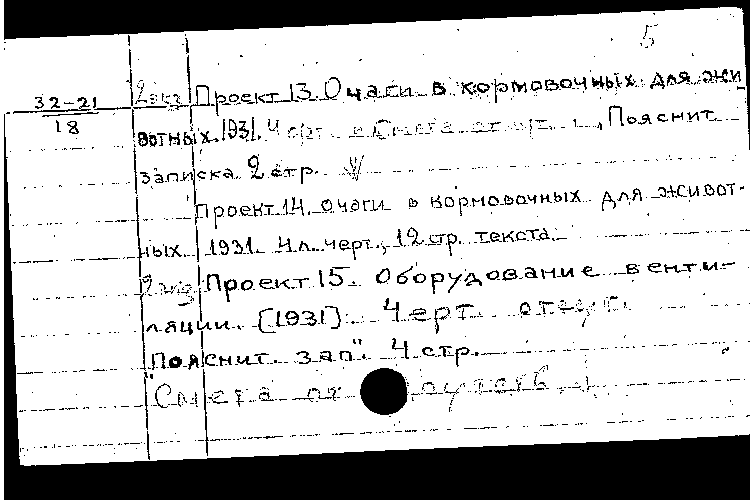 5
32-21
18
2экз Проект 13. Очаги в кормовочных для жи
вотных. 1931. Черт. и Смета отсут., Пояснит
записка 2 стр.
Проект 14. очаги в кормовочных для живот-
ных. 1931. 4 л. черт., 12 стр. текста.
2экз Проект 15. Оборудование венти-
ляции. [1931]. Черт. отсут.
"Пояснит. зап". 4 стр.
"Смета отсутств.